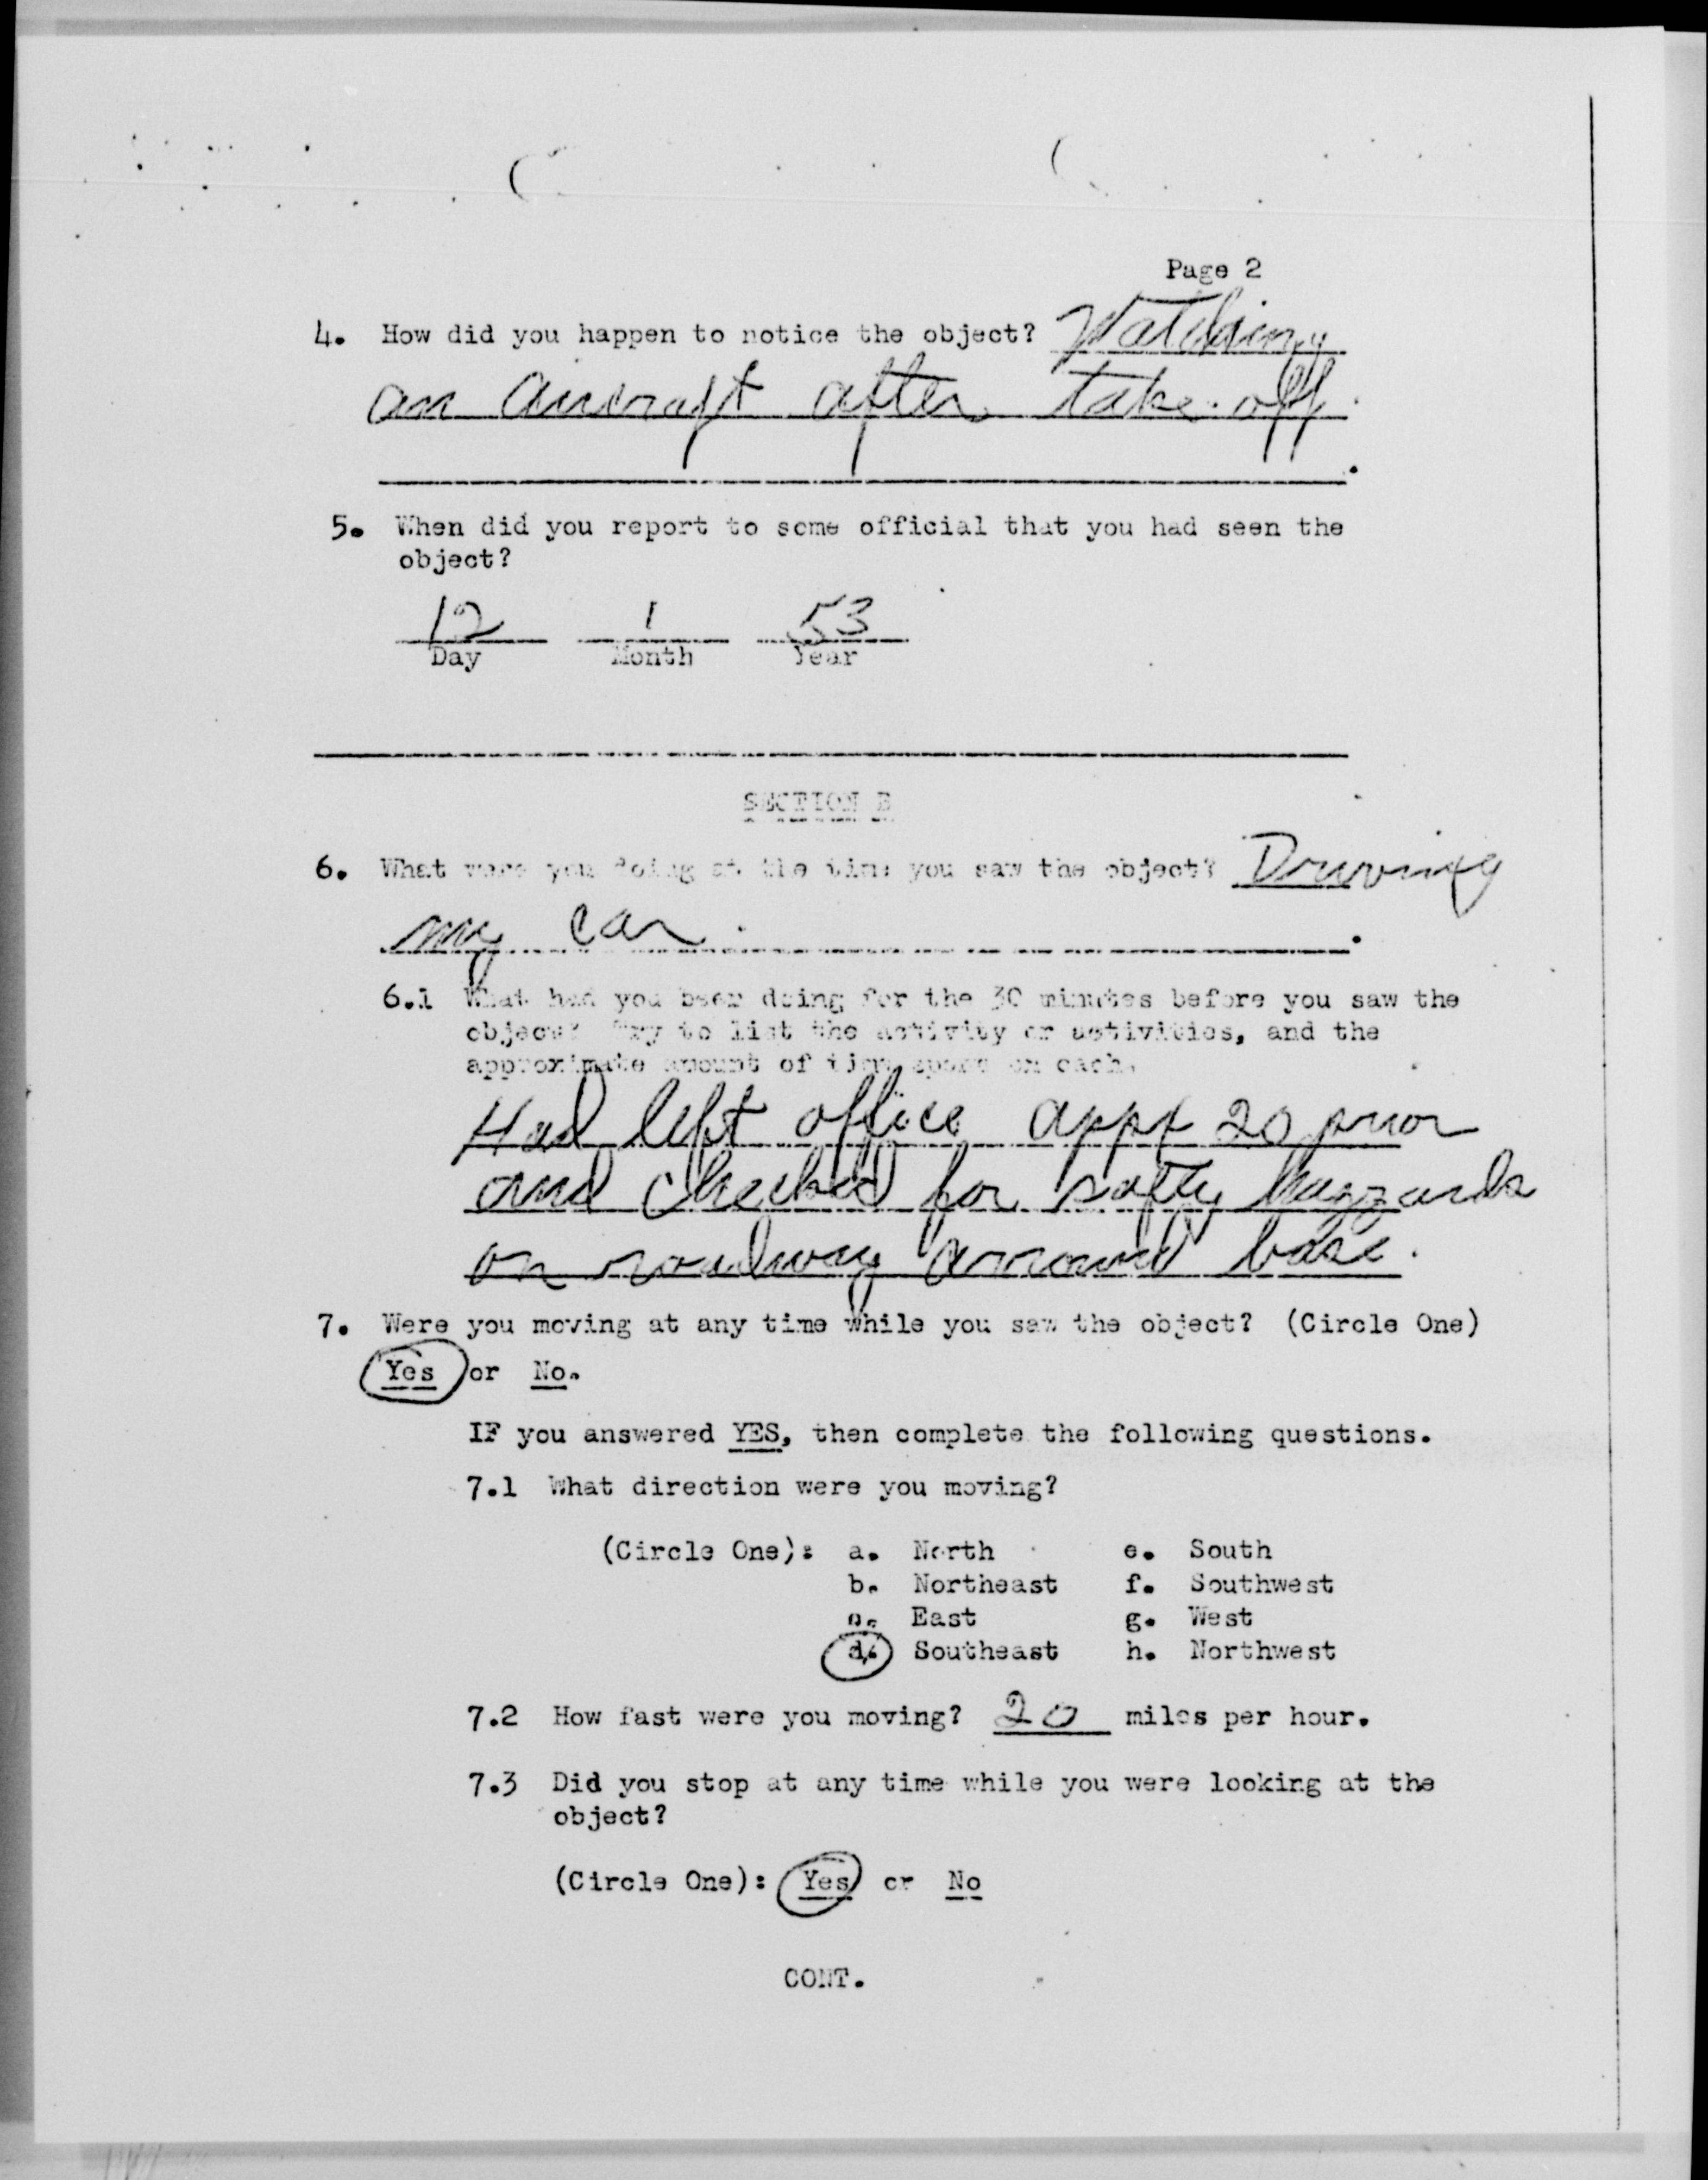 Page 2
4. How did you happen to notice the object? Watching
an aircraft after take off.
5. When did you report to some official that you had seen the
object?
12 1 53
Day Month Year
SECTION B
6. What were you doing at the time you saw the object? Driving
my car.
6.1 What had you been doing for the 30 minutes before you saw the
object? Try to list the activity or activities, and the
approximate amount of time spent on each.
Had left office appx 20 prior
and checked for safty hazzards
on roadway arround base.
7. Were you moving at any time while you saw the object? (Circle One)
Yes or No.
IF you answered YES, then complete the following questions.
7.1 What direction were you moving?
(Circle One): a. North e. South
b. Northeast f. Southwest
c. East g. West
d. Southeast h. Northwest
7.2 How fast were you moving? 20 miles per hour.
7.3 Did you stop at any time while you were looking at the
object?
(Circle One): Yes or No
CONT.